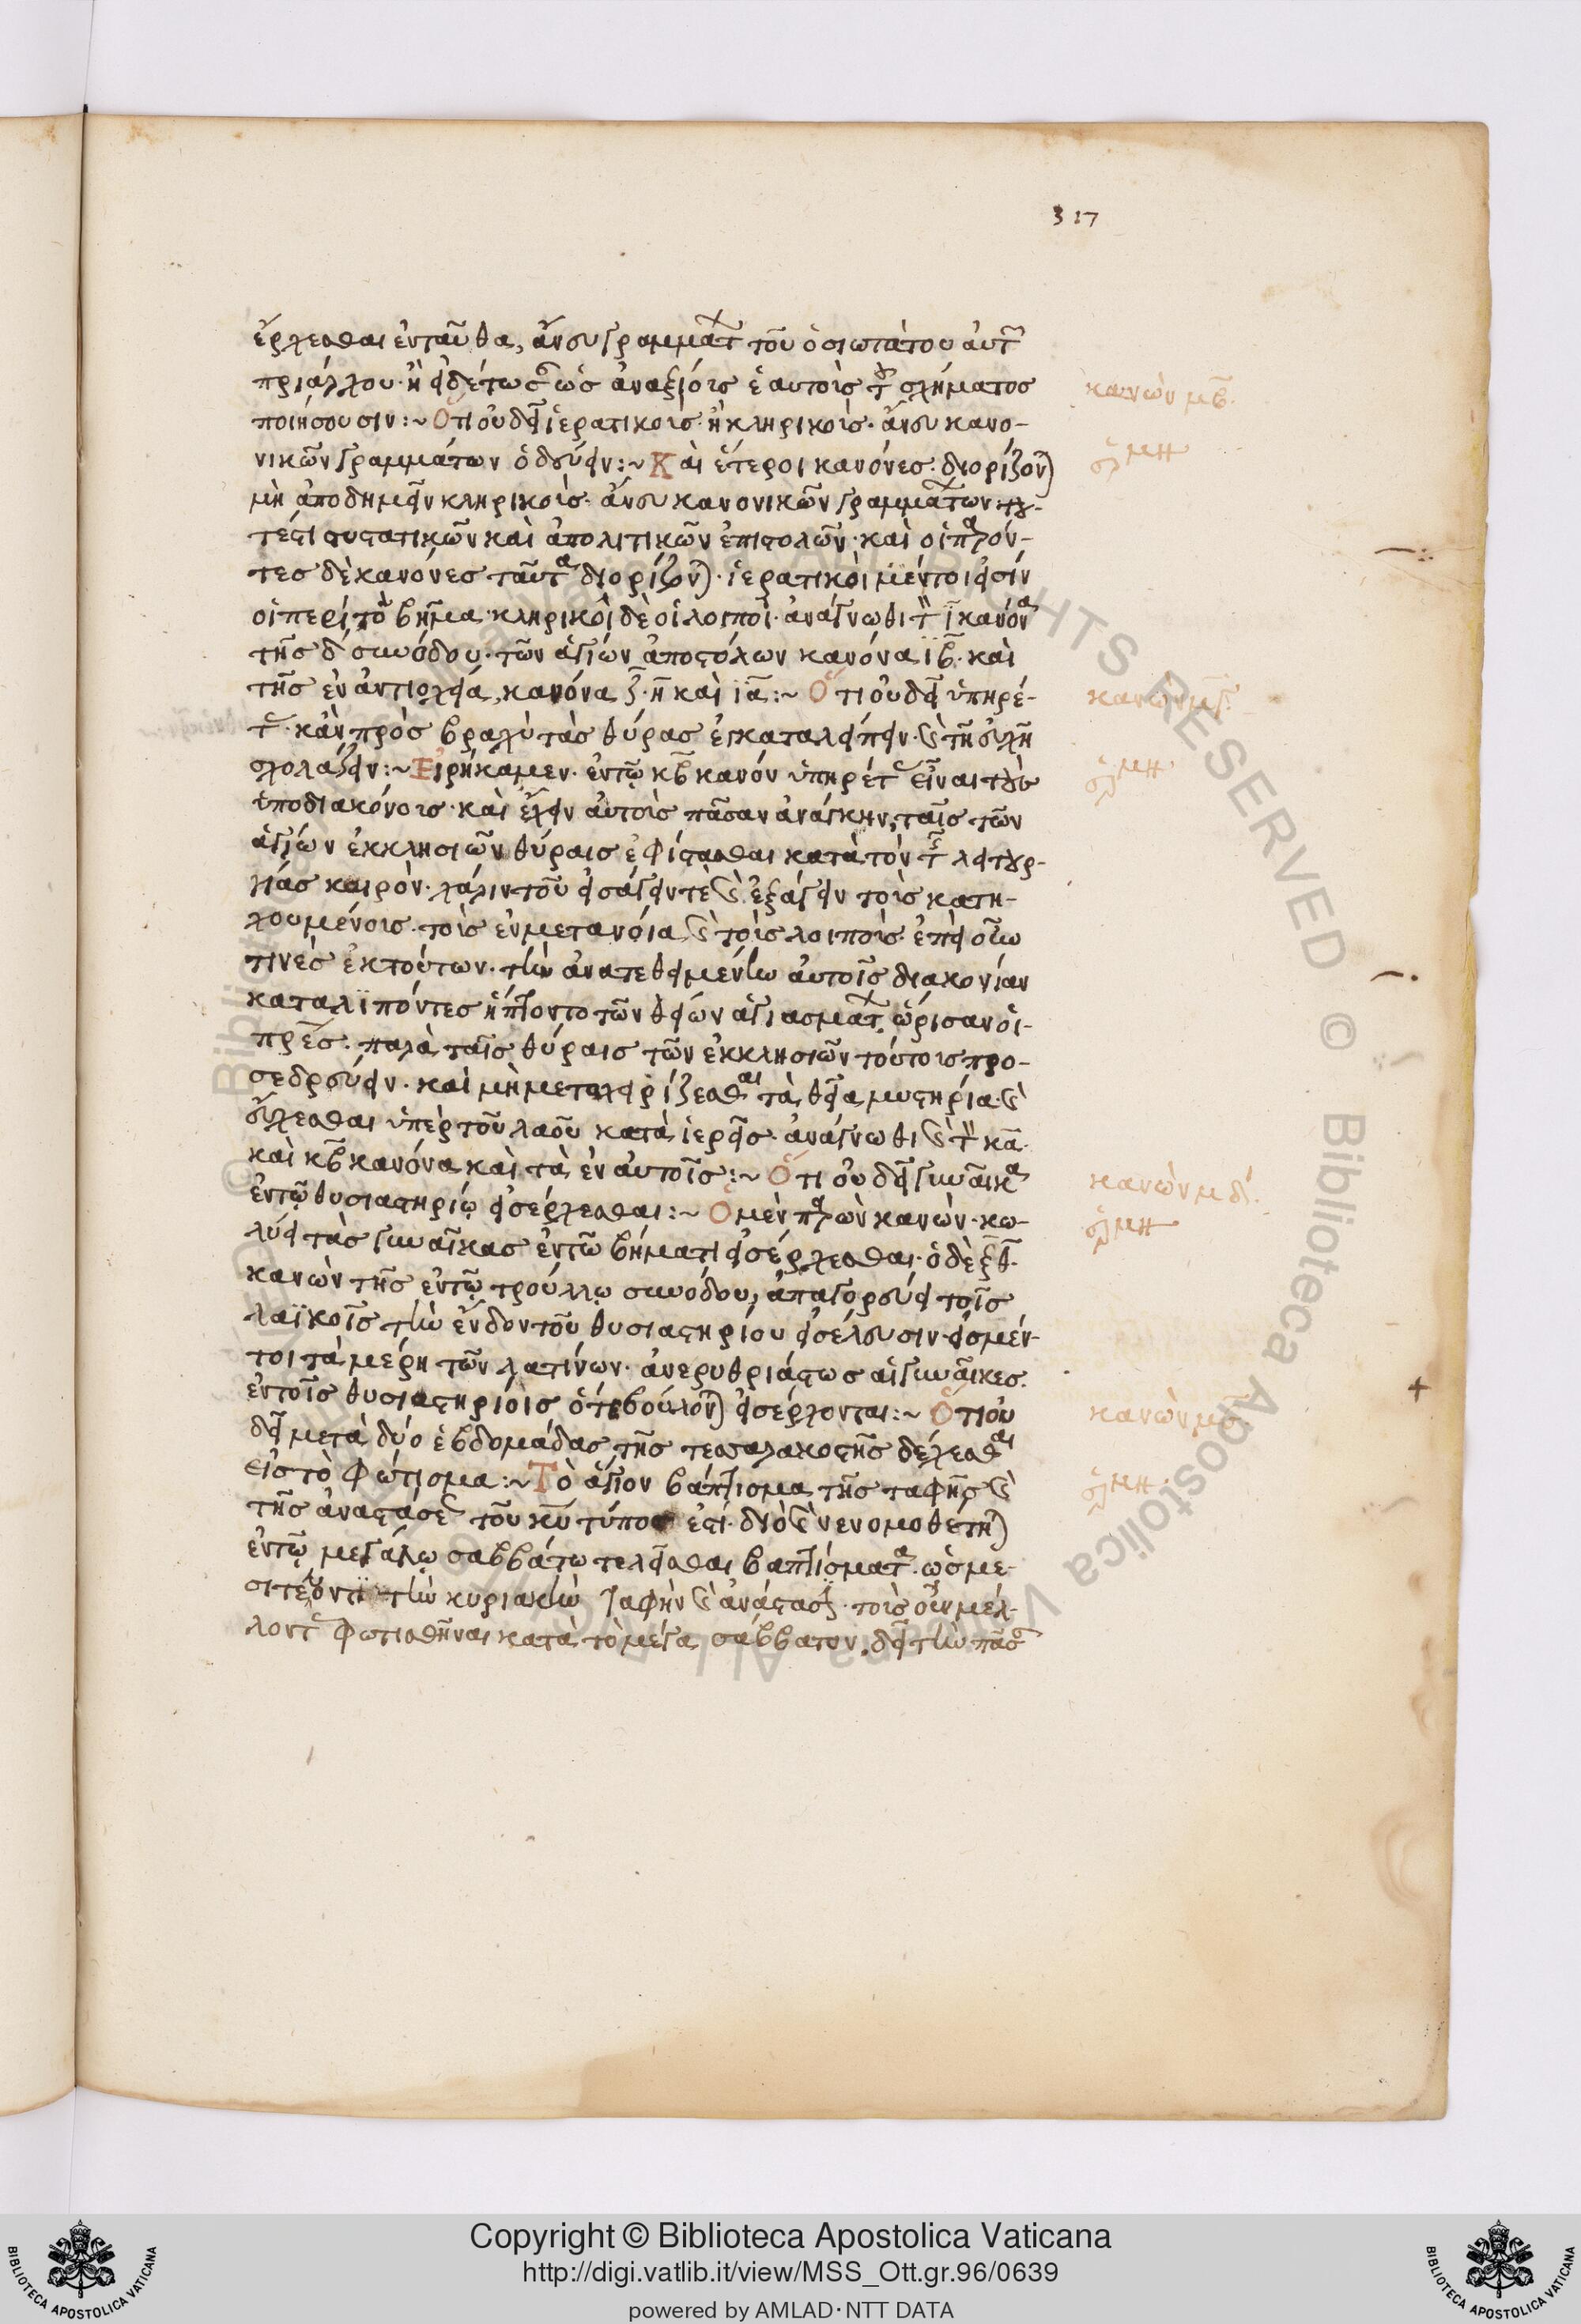 317
ἔρχεσθαι ἐνταῦθα, ἄνευ γραμμάτ τοῦ ὁσιωτάτου αὐτ
πριάρχου· ἢ εἰδέτωσ ὡς ἀναξίοις ἑαυτοῖς τ σχήματος
ποιήσουσιν:~ Ὅτι οὐ δεῖ ἱερατικοῖς ἢ κληρικοῖς· ἄνευ κανο-
νικῶν γραμμάτων ὁδεύειν:~ Καὶ ἕτεροι κανόνες διορίζον
μὴ ἀποδημεῖν κληρικοῖς· ἄνευ κανονικῶν γραμμάτων
τέστι συστατικῶν καὶ ἀπολιτικῶν ἐπιστολῶν· καὶ οἱ παρόν-
τες δὲ κανόνες ταῦτα διορίζον· ἱερατικοὶ μέντοι εἰσίν
οἱ περὶ τὸ βῆμα· κληρικοὶ δὲ οἱ λοιποί· ἀνάγνωθι τ ι κανόνα
τῆς δ συνόδου· τῶν ἁγίων ἀποστόλων κανόνα ιβ· καὶ
τῆς ἐν ἀντιοχεία, κανόνα ζ· η καὶ ια:~ Ὅτι οὐ δεῖ ὑπηρέ-
τ· κἂν πρὸς βραχὺ τὰς θύρας ἐγκαταλείπειν· καὶ τῆ εὐχῆ
σχολάζειν:~ Εἰρήκαμεν· ἐν τῶ κβ κανόν ὑπηρέτ εἶναι τοὺς
ὑποδιακόνοις· καὶ ἔχειν αὐτοῖς πᾶσαν ἀνάγκην, ταῖς τῶν
ἁγίων ἐκκλησιῶν θύραις ἐφίστασθαι κατὰ τὸν τ λειτουρ-
γίας καιρὸν· χάριν τοῦ εἰσάγειν τὲ καὶ ἐξάγειν τοῖς κατη-
χουμένοις· τοῖς ἐν μετανοία καὶ τοῖς λοιποῖς· ἐπεὶ οὖν
τινὲς ἐκ τούτων· τὴν ἀνατεθειμένην αὐτοῖς διακονίαν
καταλιπόντες ἥπτοντο τῶν θείων ἁγιασμάτ. ὥρισαν οἱ
πρες· παρὰ ταῖς θύραις τῶν ἐκκλησιῶν τούτοις προ-
σεδρεύειν· καὶ μὴ μεταχειρίζεσθαι τὰ θεῖα μυστήρια· καὶ
εὔχεσθαι ὑπὲρ τοῦ λαοῦ κατὰ ἱερεῖς· ἀνάγνωθι καὶ τ κα·
καὶ κβ κανόνα καὶ τὰ ἐν αὐτοῖς:~ Ὅτι οὐ δεῖ γυναῖκα
ἐν τῶ θυσιαστηρίῳ εἰσέρχεσθαι:~ Ὁ μὲν παρὼν κανὼν· κω-
λύει τὰς γυναῖκας ἐν τῶ βήματι εἰσέρχεσθαι· ὁ δὲ ξθ·
κανὼν τῆς ἐν τῷ τρούλλῳ συνόδου, ἀπαγορεύει τοῖς
λαϊκοῖς τὴν ἔνδον τοῦ θυσιαστηρίου εἰσέλευσιν· εἰς μέν-
τοι τὰ μέρη τῶν λατίνων· ἀνερυθριάστως αἱ γυναῖκες
ἐν τοῖς θυσιαστηρίοις ὅτε βούλον εἰσέρχονται:~ Ὅτι οὐ
δεῖ μετὰ δύο ἑβδομάδας τῆς τεσσαρακοστῆς δέχεσθαι
εἰς τὸ φώτισμα:~ Τὸ ἅγιον βάπτισμα τῆς ταφῆς καὶ
τῆς ἀναστάσε τοῦ κυ τύπος ἐστί· διὸ καὶ νενομοθέτη
ἐν τῷ μεγάλῳ σαββάτω τελεῖσθαι βαπτίσματα· ὡς με-
σιτεύοντι τὴν κυριακὴν ταφὴν καὶ ἀνάστασ· τοῖς οὖν μέλ-
λοντ φωτισθῆναι κατὰ τὸ μέγα σάββατον. δεῖ τὴν πᾶσ
κανὼν μβ·
σχ μη
κανὼν μγ
σχ μη
κανὼν μδ·
σχ μη
κανὼν με
σχ μη
Copyright © Biblioteca Apostolica Vaticana
http://digi.vatlib.it/view/MSS_Ott.gr.96/0639
powered by AMLAD·NTT DATA